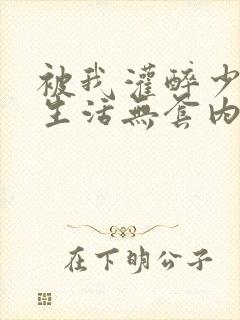 被我灌醉少
生活無套内
在下明公子